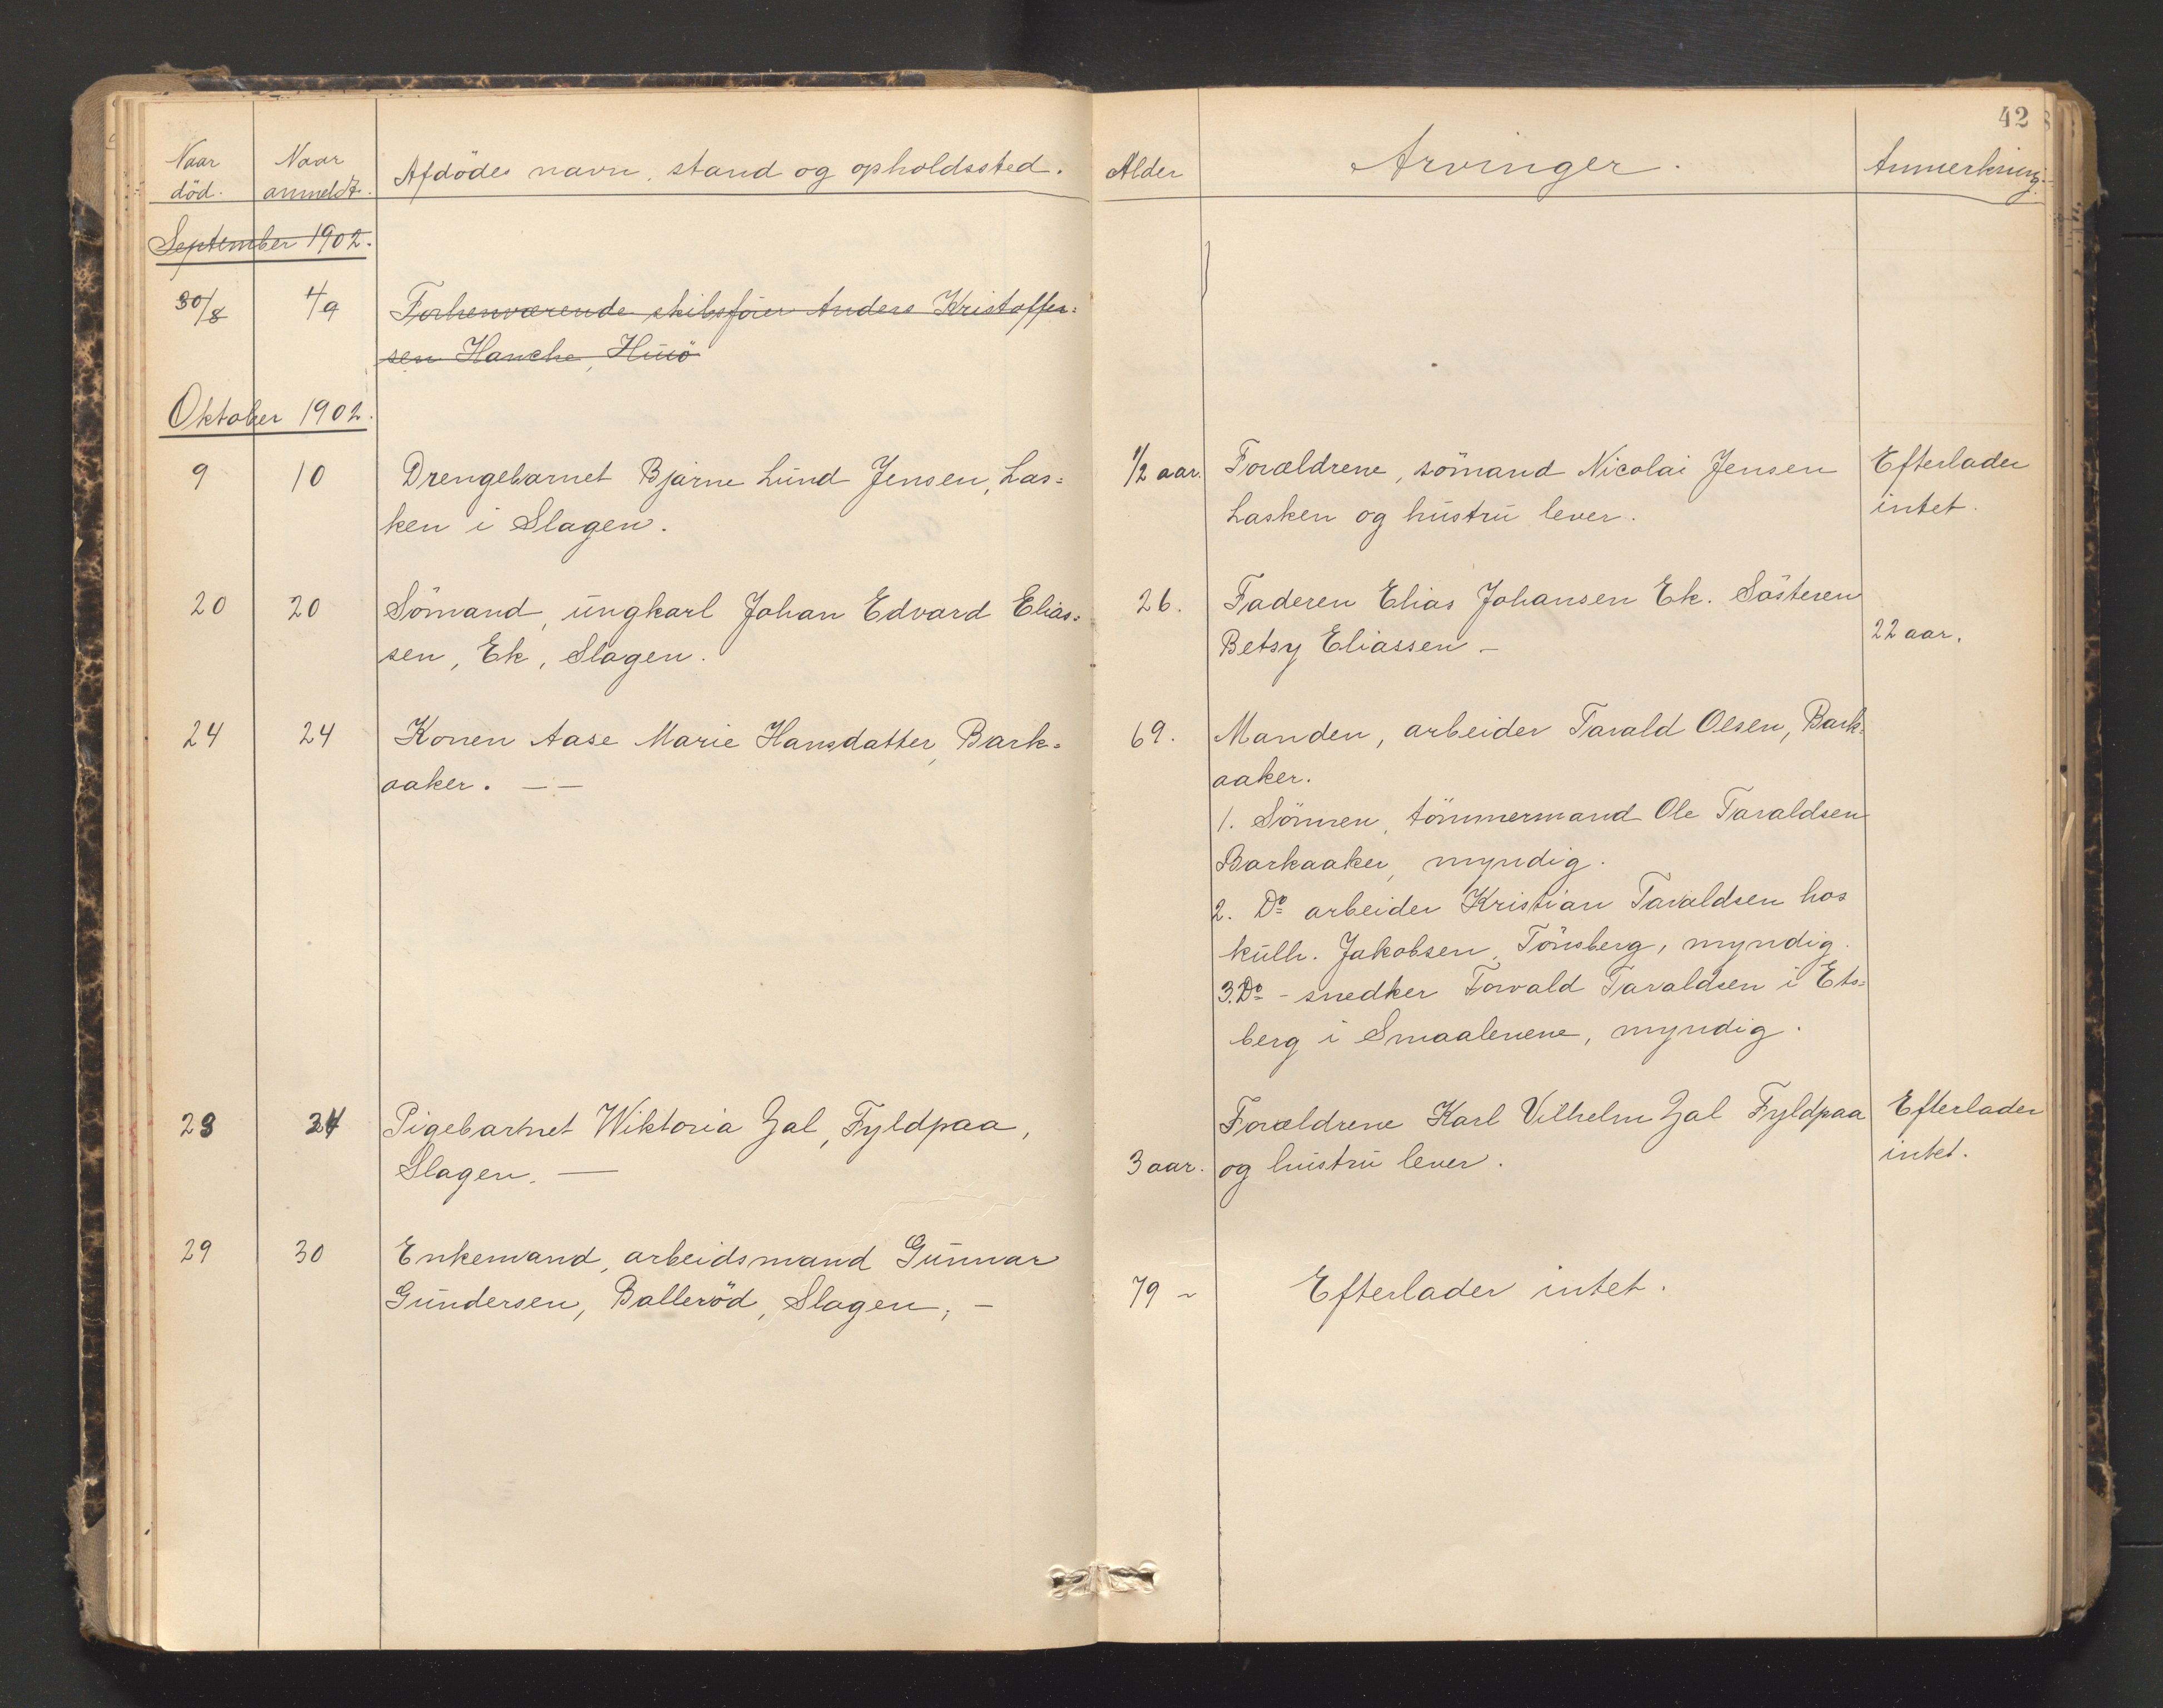 42
Naar død. Naar anmeldt. Afdödes navn, stand og opholdssted. Alder Arvinger. Anmerkning.
September 1902.
30/8 4/9 Forhenværende skibsförer Anders Kristoffer=
sen Hanche, Husö
Oktober 1902.
9 10 Drengebarnet Bjarne Lund Jensen, Las= 1/2 aar. Forældrene, sömand Nicolai Jensen Efterlader
ken i Slagen. Lasken og hustru lever. intet.
20 20 Sömand, ungkarl Johan Edvard Elias= 26. Faderen Elias Johansen Ek. Sösteren
sen, Ek, Slagen. Betsy Eliassen – 22 aar.
24 24 Konen Aase Marie Hansdatter, Bark= 69. Manden, arbeider Tarald Olsen, Bark=
aaker. – – aaker.
1. Sönnen, tömmermand Ole Taraldsen
Barkaaker, myndig.
2. Do arbeider Kristian Taraldsen hos
kulh. Jakobsen, Tönsberg, myndig.
3. Do - snedker Torvald Taraldsen i Eds=
berg i Smaalenene, myndig.
23 24 Pigebarnet Wiktoria Zal, Fyldpaa, Forældrene Karl Vilhelm Zal Fyldpaa Efterlader
Slagen. — 3 aar. og hustru lever. intet.
29 30 Enkemand, arbeidsmand Gunnar
Gundersen, Balleröd, Slagen, – 79 ~ Efterlader intet.